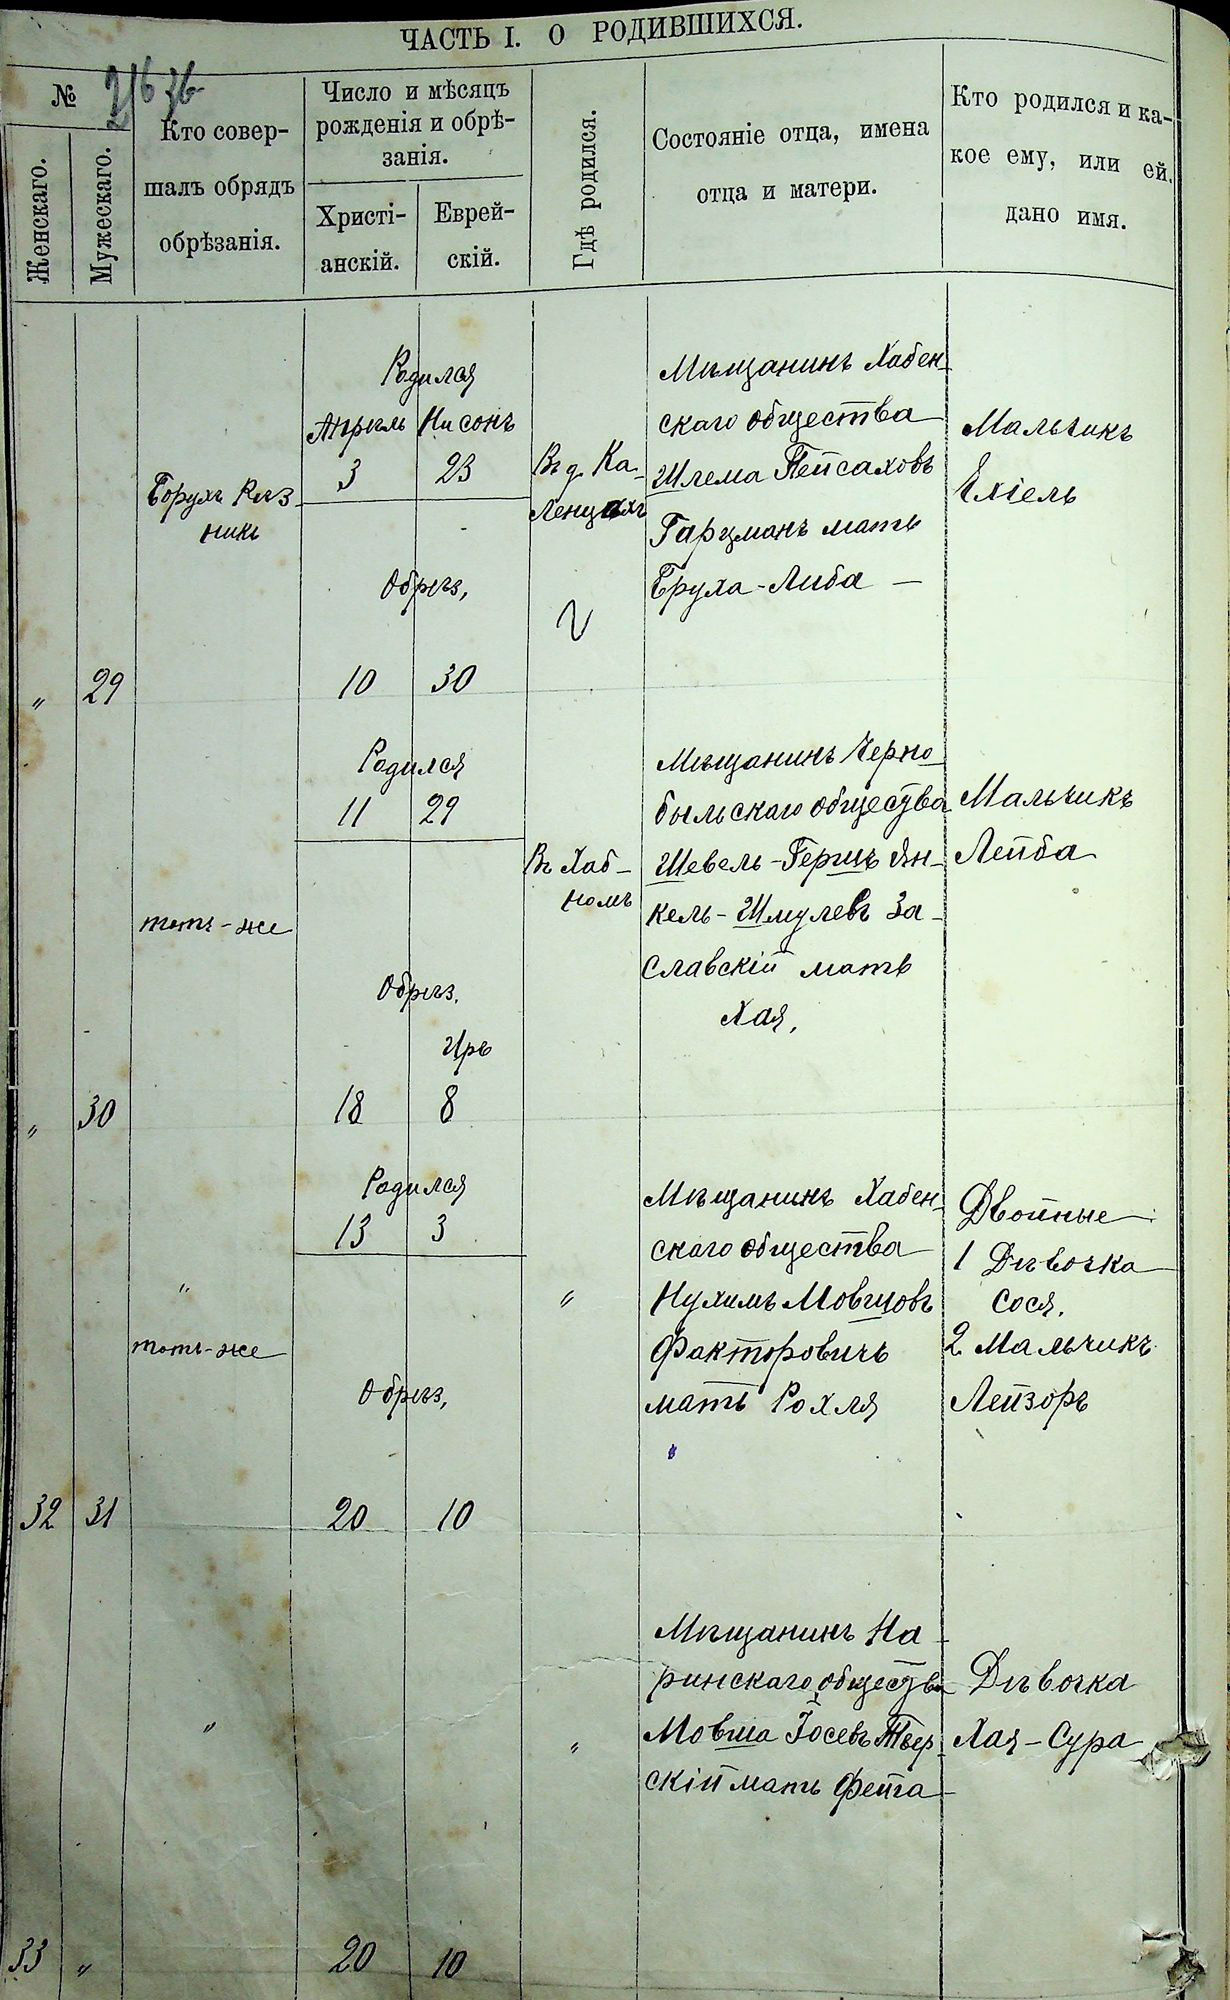 ЧАСТЬ I. О РОДИВШИХСЯ.
№
Женскаго.
Мужескаго.
Кто совер-
шалъ обрядъ
обрѣзанія.
Число и мѣсяцъ
рожденія и обрѣ-
занія.
Христі-
анскій.
Еврей-
скій.
Гдѣ родился.
Состояніе отца, имена
отца и матери.
Кто родился и ка-
кое ему, или ей,
дано имя.
„ 29
Борухъ Рѣз-
никъ
Родился
Апрѣль Нисонъ
3 23
Обрѣз,
10 30
Въ д. Ка-
Мѣщанинъ Хабен-
скаго общества
Шлема Пейсаховъ
Гарцманъ мать
Бруха-Либа —
Мальчикъ
Ехіель
„ 30
тотъ-же
Родился
11 29
Обрѣз.
Иръ
18 8
Въ Хаб-
номъ
Мѣщанинъ Черно-
быльскаго общества
Шевель-Гершъ Ян-
кель-Шмулевъ За-
славскій мать
Хая,
Мальчикъ
Лейба
32 31
„
тотъ-же
Родился
13 3
Обрѣз,
20 10
„
Мѣщанинъ Хабен-
скаго общества
Нухимъ Мовшовъ
Факторовичъ
мать Рохля
Двойные
1 Дѣвочка
Сося.
2 Мальчикъ
Лейзоръ
33 „
„
20 10
„
Мѣщанинъ На-
ринскаго общества
Мовша Іосевъ Твер-
скій мать Фейга —
Дѣвочка
Хая-Сура